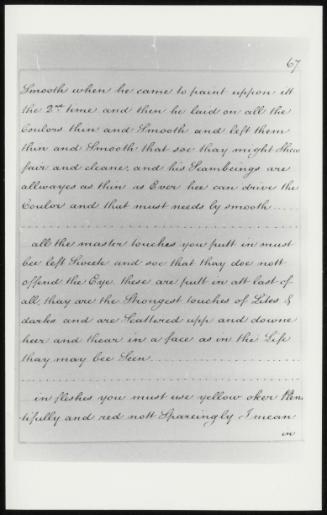 67
Smooth when he came to paint uppon itt
the 2nd time and then he laid on all the
Coulors thin and Smooth and left them
thin and Smooth that soe thay might Shew
fair and cleane, and his Scambeings are
allwayes as thin as Ever hee can drive the
Coulor and that must needs by smooth
all the master touches you putt in must
bee left Sweete and soe that thay doe nott
offend the Eye these are putt in att last of
all, thay are the Strongest touches of Lites &
darks and are Scattered upp and downe
heer and thear in a face as in the Life
thay may bee Seen
in fleshes you must use yellow oker Plen,
tifully and red nott Spareingly I mean
in